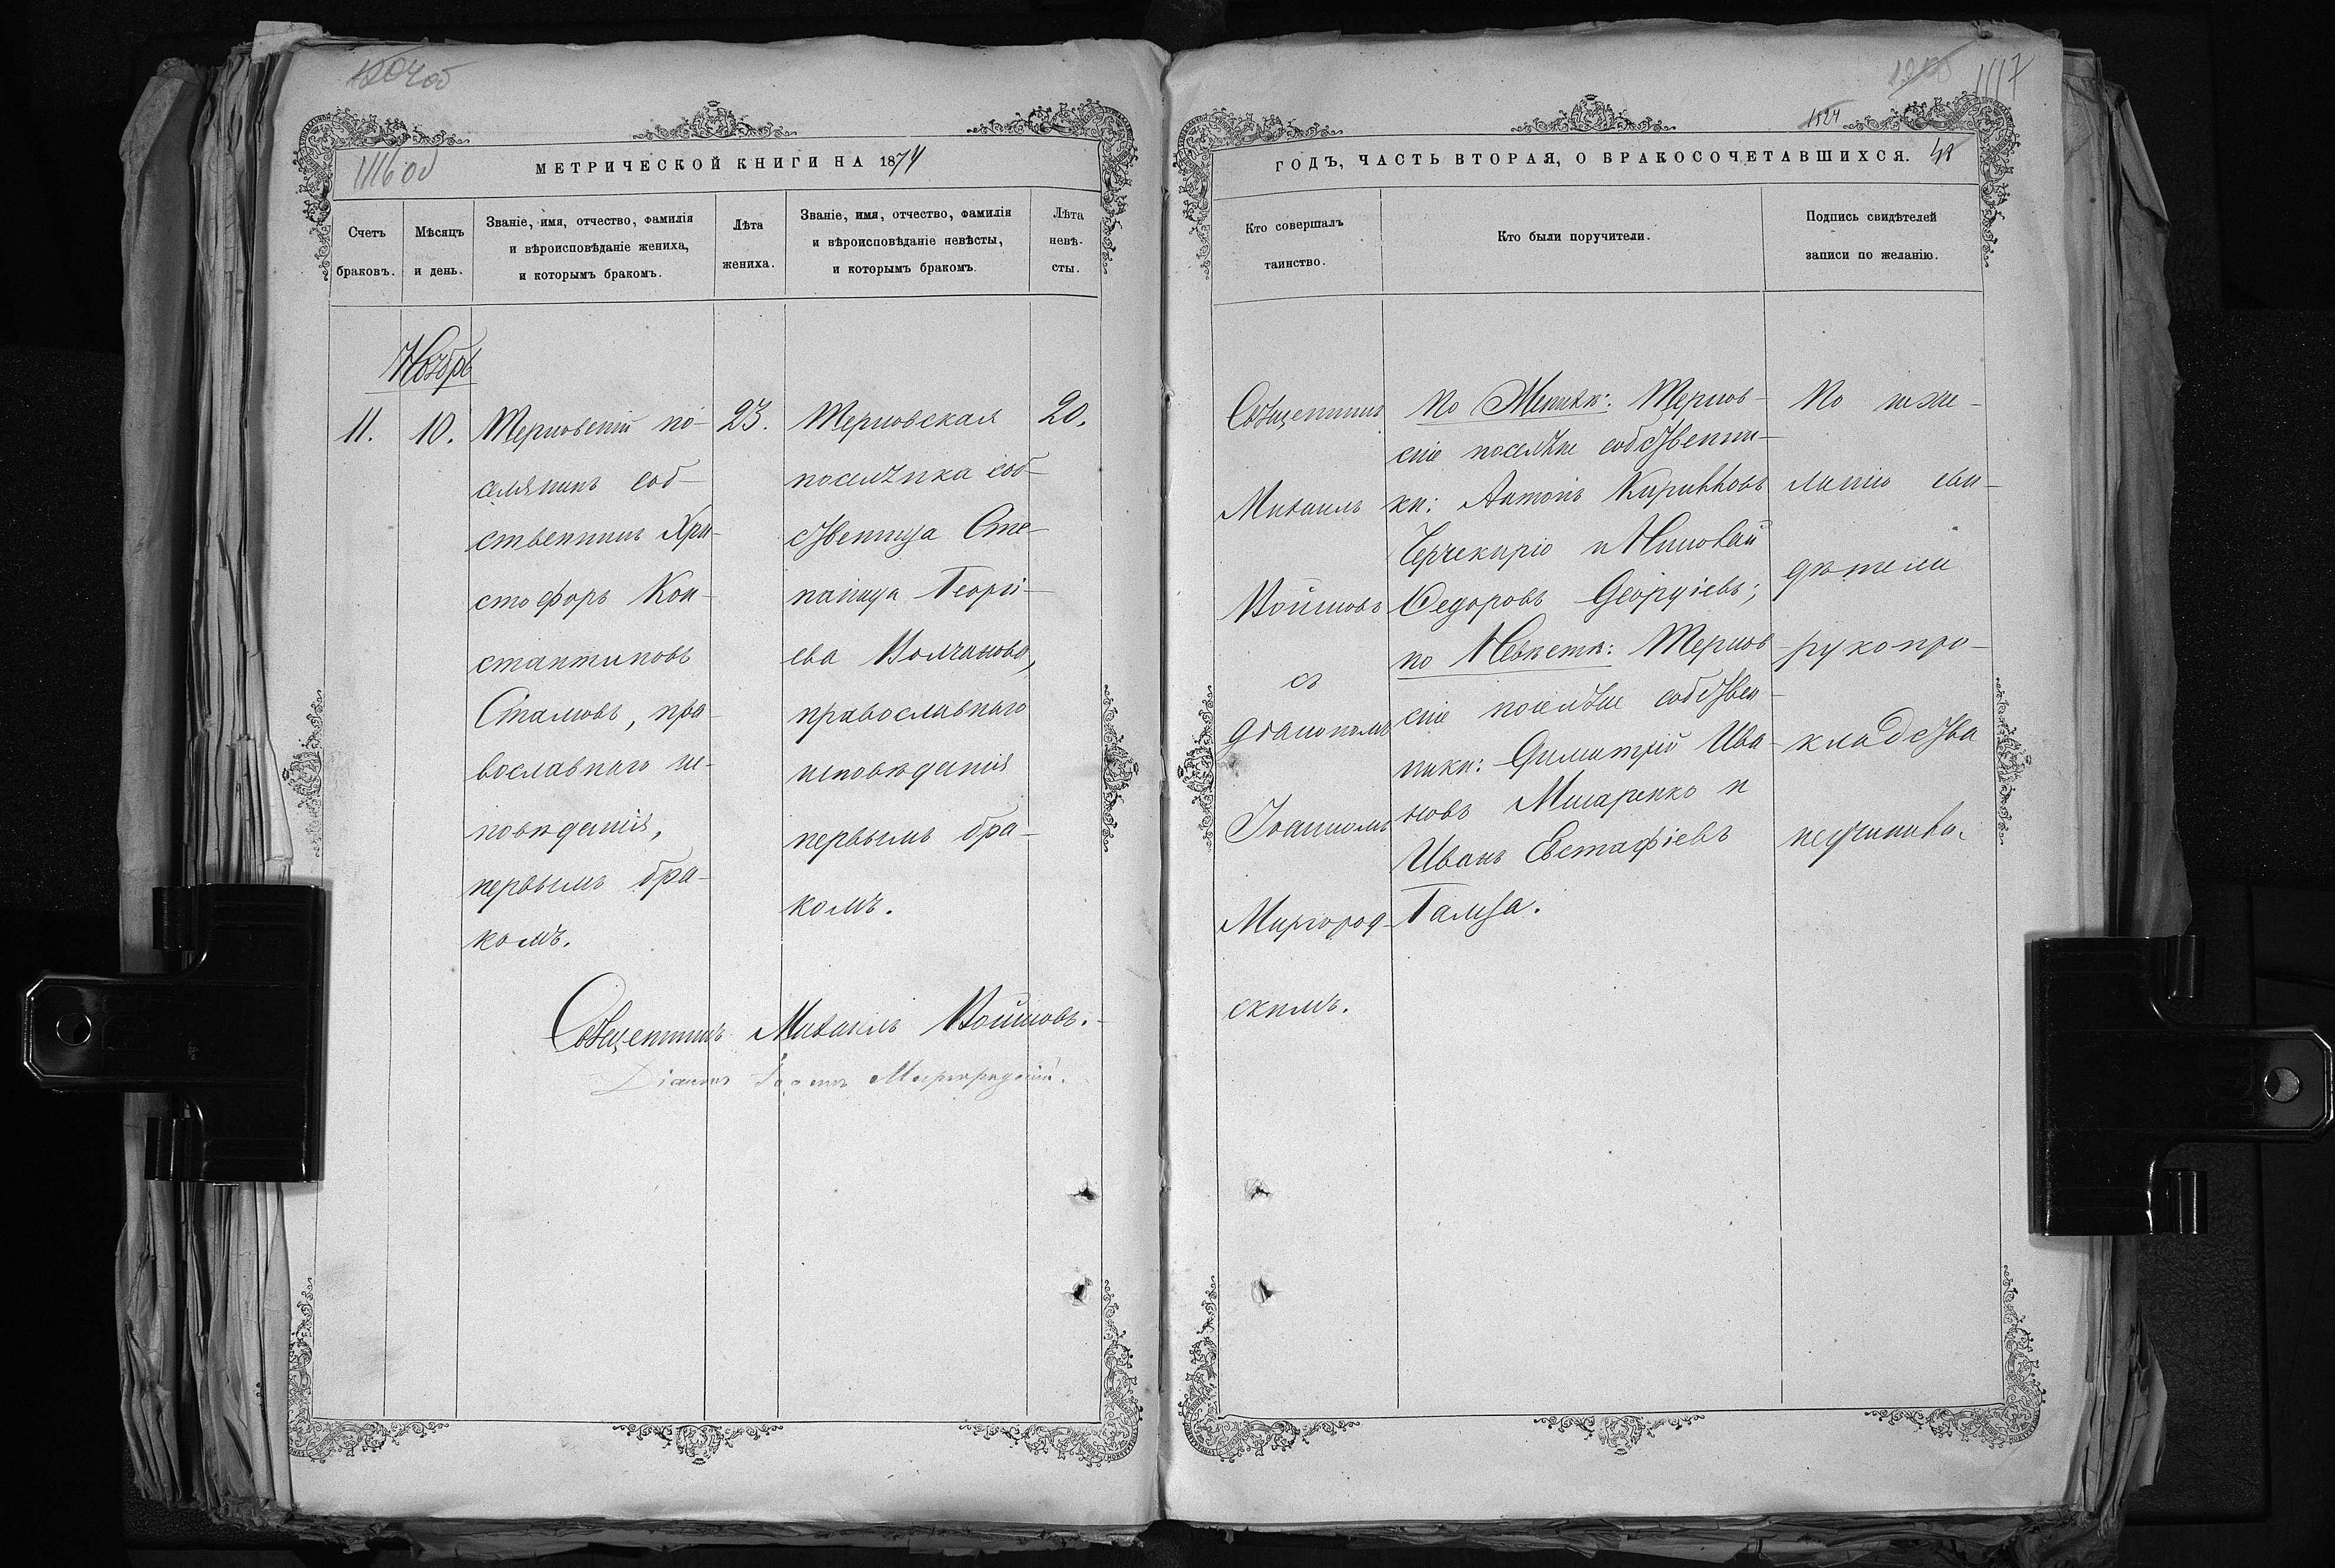 1116 об
МЕТРИЧЕСКОЙ КНИГИ НА 1874
Счетъ
браковъ.
Мѣсяцъ
и день.
Званіе, имя, отчество, фамилія
и вѣроисповѣданіе жениха,
и которымъ бракомъ.
Лѣта
жениха.
Званіе, имя, отчество, фамилія
и вѣроисповѣданіе невѣсты,
и которымъ бракомъ.
Лѣта
невѣ-
сты.
Ноябрь
11.
10.
Терновскій по-
селянинъ соб-
ственникъ Хри-
стофоръ Кон-
стантиновъ
Стамовъ, пра-
вославнаго ис-
повѣданія,
первымъ бра-
комъ.
23.
Терновская
поселянка соб-
ственница Сте-
панида Георгі-
ева Волчанова,
православнаго
исповѣданія
первымъ бра-
комъ.
20.
Священникъ Михаилъ Войновъ.
Діаконъ Іоаннъ Миргородскій.
1117
1524
ГОДЪ, ЧАСТЬ ВТОРАЯ, О БРАКОСОЧЕТАВШИХСЯ. 48
Кто совершалъ
таинство.
Кто были поручители.
Подпись свидѣтелей
записи по желанію.
Священникъ
Михаилъ
Войновъ
съ
діакономъ
Іоанномъ
Миргород-
скимъ.
По Женихѣ: Тернов-
скіе поселяне собственни-
ки: Антонъ Кирилловъ
и Николай
Федоровъ Георгіевъ;
по Невѣстѣ: Тернов-
скіе поселяне собствен-
ники: Димитрій Ива-
новъ и
Иванъ Евстафіевъ
Гамза.
По неже-
ланію сви-
дѣтелей
рукопри-
кладства
неучинено.